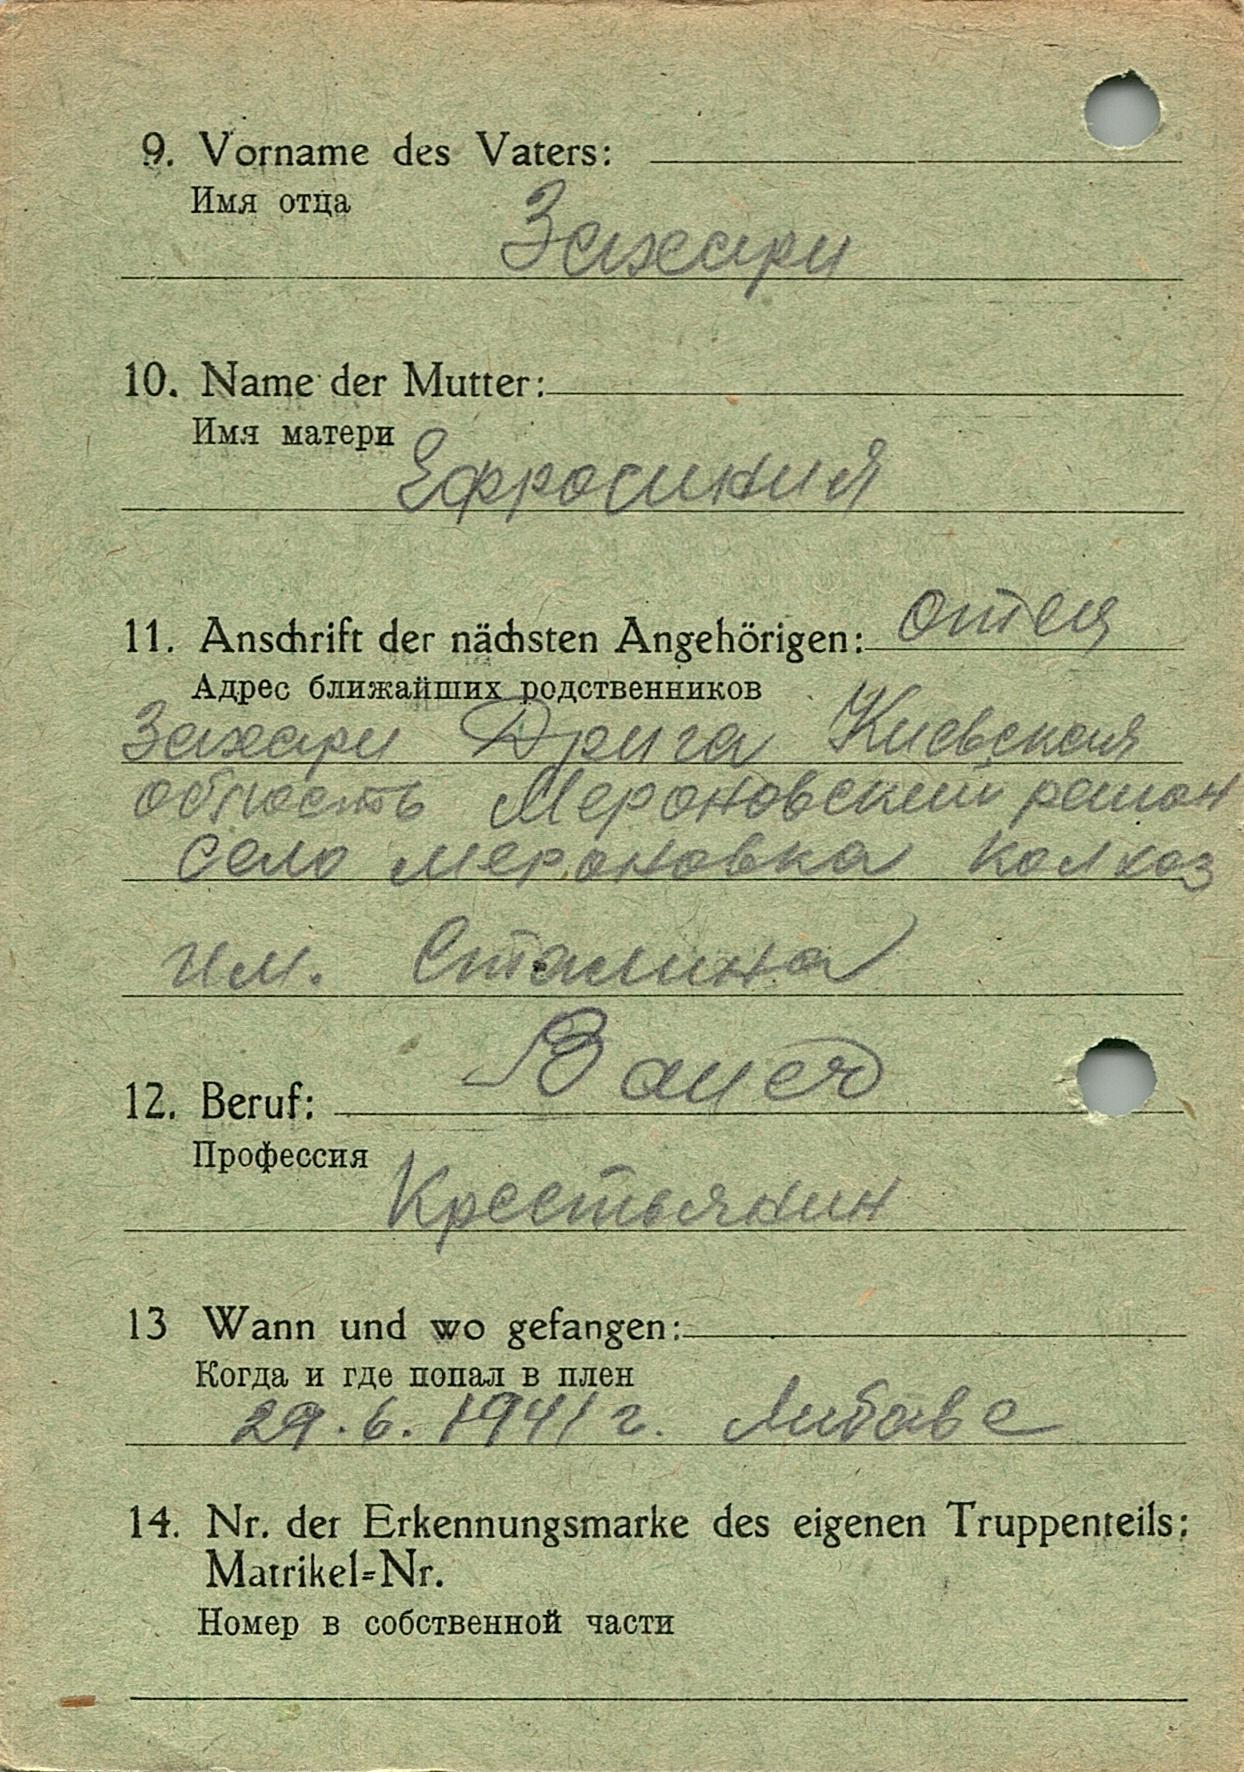 9. Vorname des Vaters:
Имя отца
Захари
10. Name der Mutter:
Имя матери
Ефросиния
11. Anschrift der nächsten Angehörigen: отец
Адрес ближайших родственников
Захари Дрига Киевская
область Мероновский район
село Мероновка колхоз
им. Сталина
Bauer
12. Beruf:
Профессия
Крестьянин
13 Wann und wo gefangen:
Когда и где попал в плен
29.6.1941 г. Либаве
14. Nr. der Erkennungsmarke des eigenen Truppenteils:
Matrikel=Nr.
Номер в собственной части